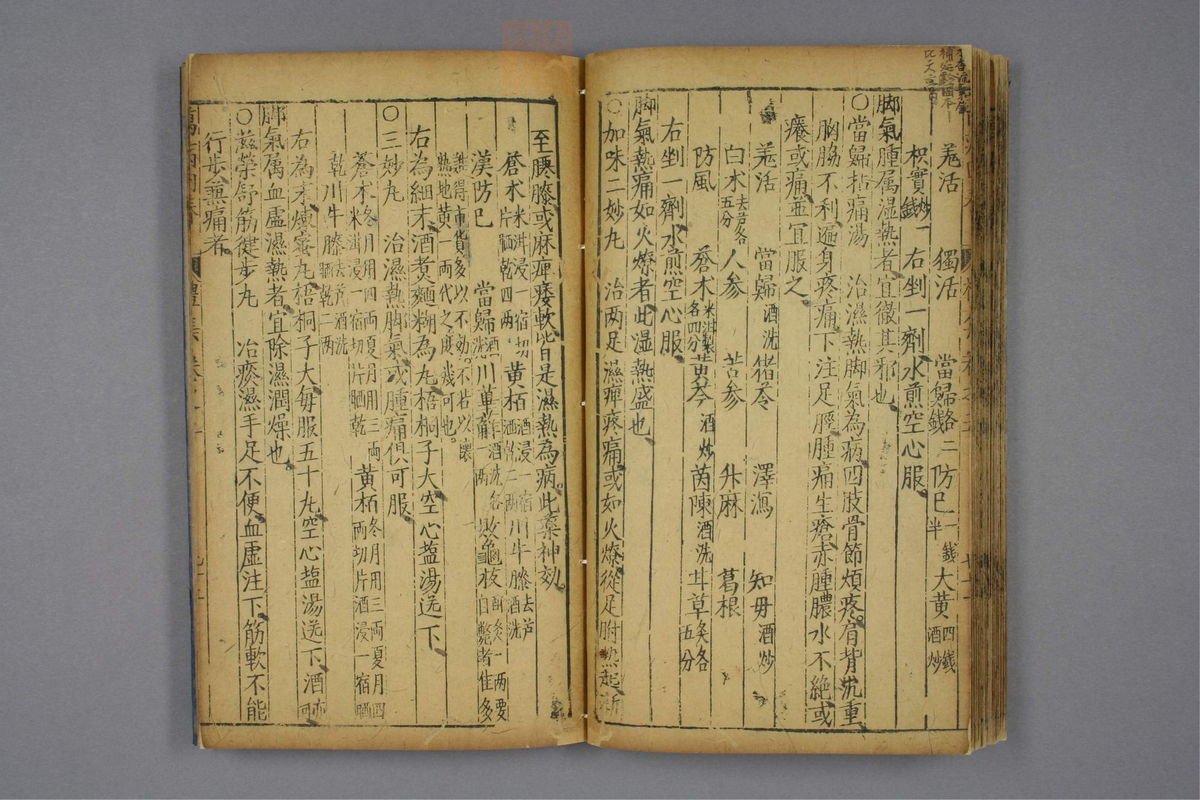 羗活　獨活　當歸各二錢　防巳一錢半　大黃四錢酒炒
枳實炒一錢　右剉一劑水煎空心服
脚氣腫属湿熱者宜徹其邪也
○當歸拈痛湯　治濕熱脚氣為病四肢骨節煩疼肩背沉重
胸膈不利遍身疼痛下注足脛腫痛生瘡赤腫膿水不絶或
癢或痛並宜服之
羗活　當歸酒洗　猪苓　澤瀉　知母酒炒
白朮去芦各五分　人參　苦參　升麻　葛根
防風　蒼朮米泔製各四分　黃芩酒炒　茵陳酒洗　甘草炙各五分
右剉一劑水煎空心服
脚氣熱痛如火燎者此湿熱盛也
○加味二妙丸　治两足濕痺疼痛或如火燎從足跗熱起漸
至腰膝或麻痺痿軟皆是濕熱為病此藥神効
蒼朮米泔浸一宿切片晒乾四两　黃栢酒浸一宿晒乾二两　川牛膝去芦酒洗
漢防巳　當歸酒洗　川萆薢酒洗各一两　敗龜板酥炙一两要自斃者佳多
誰得市貨多以不効不若以懷熟地黃一两代之庻幾可也
右為細末酒煑麵糊為丸梧桐子大空心盐湯送下
○三妙丸　治濕熱脚氣或腫痛俱可服
蒼朮冬月用四两夏月用三两米泔浸一宿切片晒乾　黃栢冬月用三两夏月四两切片酒浸一宿晒
乾川牛膝去芦酒洗晒乾二两
右為末煉蜜丸梧桐子大每服五十丸空心盐湯送下酒亦可
脚氣属血虛濕熱者宜除濕潤燥也
○滋榮舒筋健步丸　治瘀濕手足不便血虛注下筋軟不能
行步兼痛者